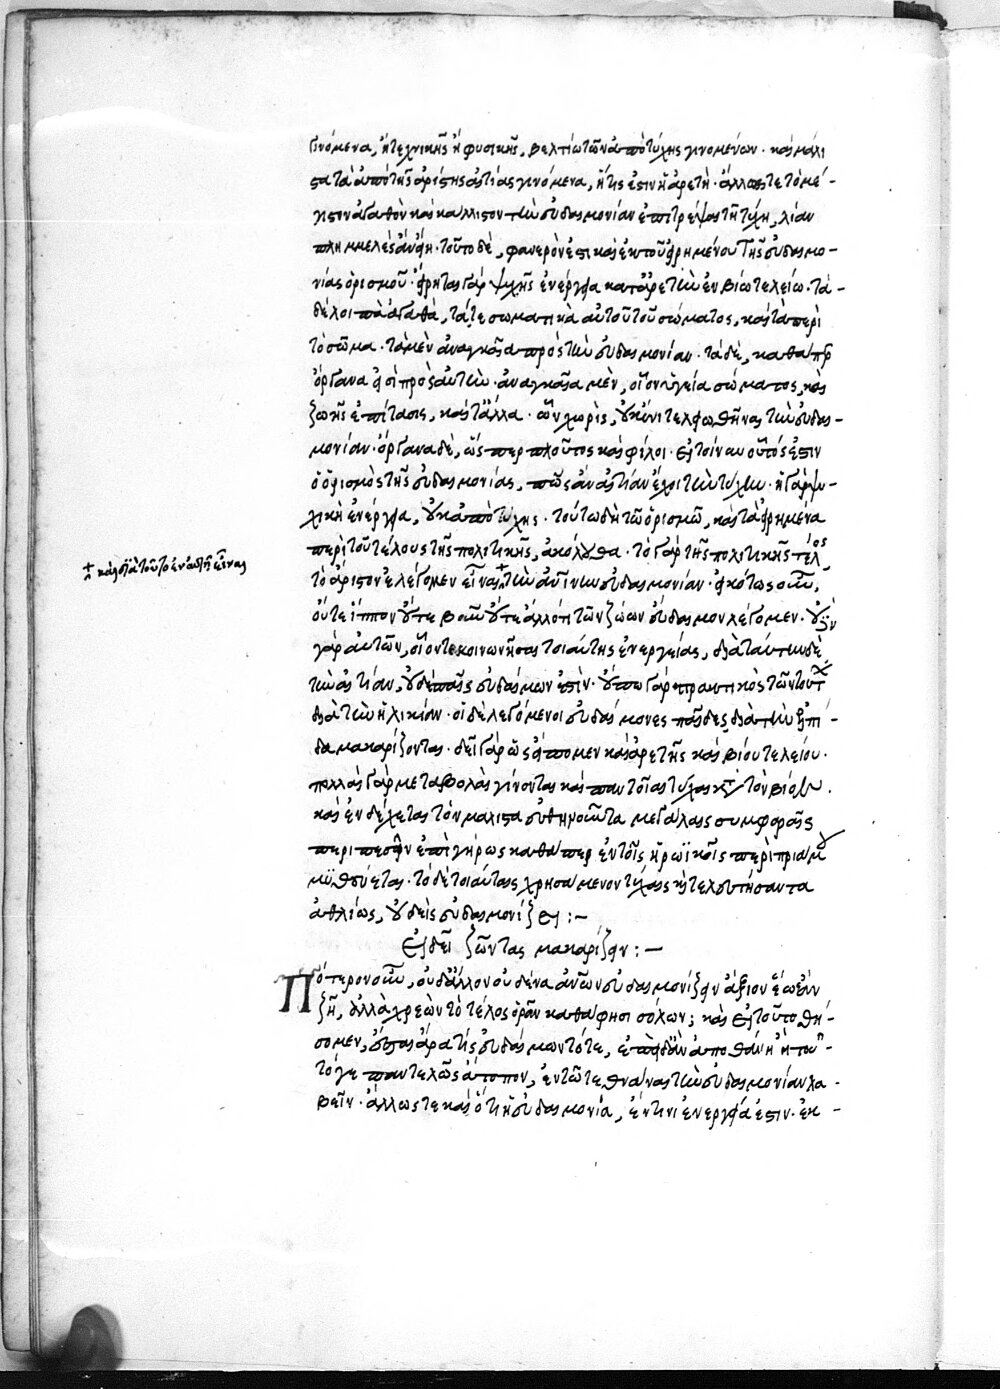 γινόμενα, ἢ τεχνικῆς ἢ φυσικῆς, βελτίω τῶν ἀπὸ τύχης γινομένων. καὶ μάλι
στα τὰ ἀπὸ τῆς ἀρίστης αἰτίας γινόμενα, ἥτις ἐστὶν ἡ ἀρετή. ἄλλως τε τὸ μέ-
γιστον ἀγαθὸν καὶ κάλλιστον τὴν εὐδαιμονίαν ἐπιτρέψαι τῇ τύχῃ, λίαν
πλημμελὲς ἂν εἴη. τοῦτο δὲ, φανερόν ἐστι καὶ ἐκ τοῦ εἰρημένου τῆς εὐδαιμο-
νίας ὁρισμοῦ. εἴρηται γὰρ ψυχῆς ἐνέργεια κατ' ἀρετὴν ἐν βίῳ τελείῳ. τὰ
δὲ λοιπὰ ἀγαθὰ, τά τε σωματικὰ αὐτοῦ τοῦ σώματος, καὶ τὰ περὶ
τὸ σῶμα. τὰ μὲν ἀναγκαῖα πρὸς τὴν εὐδαιμονίαν. τὰ δὲ, καθάπερ
ὄργανα εἰσὶ πρὸς αὐτὴν. ἀναγκαῖα μὲν, οἷον ὑγεία σώματος, καὶ
ζωῆς ἐπίτασις, καὶ τἄλλα. ὧν χωρὶς, οὐκ ἔνι τελειωθῆναι τὴν εὐδαι-
μονίαν. ὄργανα δὲ, ὥσπερ πλοῦτος καὶ φίλοι. εἰ τοίνυν οὗτός ἐστιν
ὁ ὁρισμὸς τῆς εὐδαιμονίας, πῶς ἂν αἰτίαν ἔχοι τὴν τύχην. ἡ γὰρ ψυ-
χικὴ ἐνέργεια, οὐκ ἀπὸ τύχης. τούτῳ δὴ τῷ ὁρισμῷ, καὶ τὰ εἰρημένα
περὶ τοῦ τέλους τῆς πολιτικῆς, ἀκόλουθα. τὸ γὰρ τῆς πολιτικῆς τέλος
+ καὶ διὰ τοῦτο ἐν αὐτῇ εἶναι
τὸ ἄριστον ἐλέγομεν εἶναι+ τὴν εὐδαιμονίαν. εἰκότως οὖν,
οὔτε ἵππον οὔτε βοῦν οὔτε ἄλλό τι τῶν ζώων εὔδαιμον λέγομεν. οὐδὲν
γὰρ αὐτῶν, οἷόν τε κοινωνῆσαι τοιαύτης ἐνεργείας, διὰ ταύτην δὲ
τὴν αἰτίαν, οὐδὲ παῖς εὐδαίμων ἐστὶν. οὔπω γὰρ πρακτικὸς τῶν τοιούτων
διὰ τὴν ἡλικίαν. οἱ δὲ λεγόμενοι εὐδαίμονες παῖδες διὰ τὴν ἐλπί-
δα μακαρίζονται. δεῖ γὰρ ὡς εἴπομεν καὶ ἀρετῆς καὶ βίου τελείου.
πολλαὶ γὰρ μεταβολαὶ γίνονται καὶ παντοῖαι τύχαι κατὰ τὸν βίον.
καὶ ἐνδέχεται τὸν μάλιστα εὐθηνοῦντα μεγάλαις συμφοραῖς
περιπεσεῖν ἐπὶ γήρως καθάπερ ἐν τοῖς ἡρωϊκοῖς περὶ πριάμου
μυθεύεται. τὸν δὲ τοιαύταις χρησάμενον τύχαις καὶ τελευτήσαντα
ἀθλίως, οὐδεὶς εὐδαιμονίζει :-
Εἰ δεῖ ζῶντας μακαρίζειν :-
Πότερον οὖν, οὐδ' ἄλλον οὐδένα ἀνθρώπων εὐδαιμονίζειν ἄξιον ἕως ἂν
ζῇ, ἀλλὰ χρεὼν τὸ τέλος ὁρᾶν καθά φησι σόλων; καὶ εἰ τοῦτο θή-
σομεν, ἔσται ἄρά τις εὐδαίμων τότε, ἐπειδὰν ἀποθάνῃ ἢ τοῦ-
τό γε παντελῶς ἄτοπον, ἐν τῷ τεθνάναι τὴν εὐδαιμονίαν λα-
βεῖν. ἄλλως τε καὶ ὅτι ἡ εὐδαιμονία, ἔν τινι ἐνεργείᾳ ἐστιν. ἐκ-